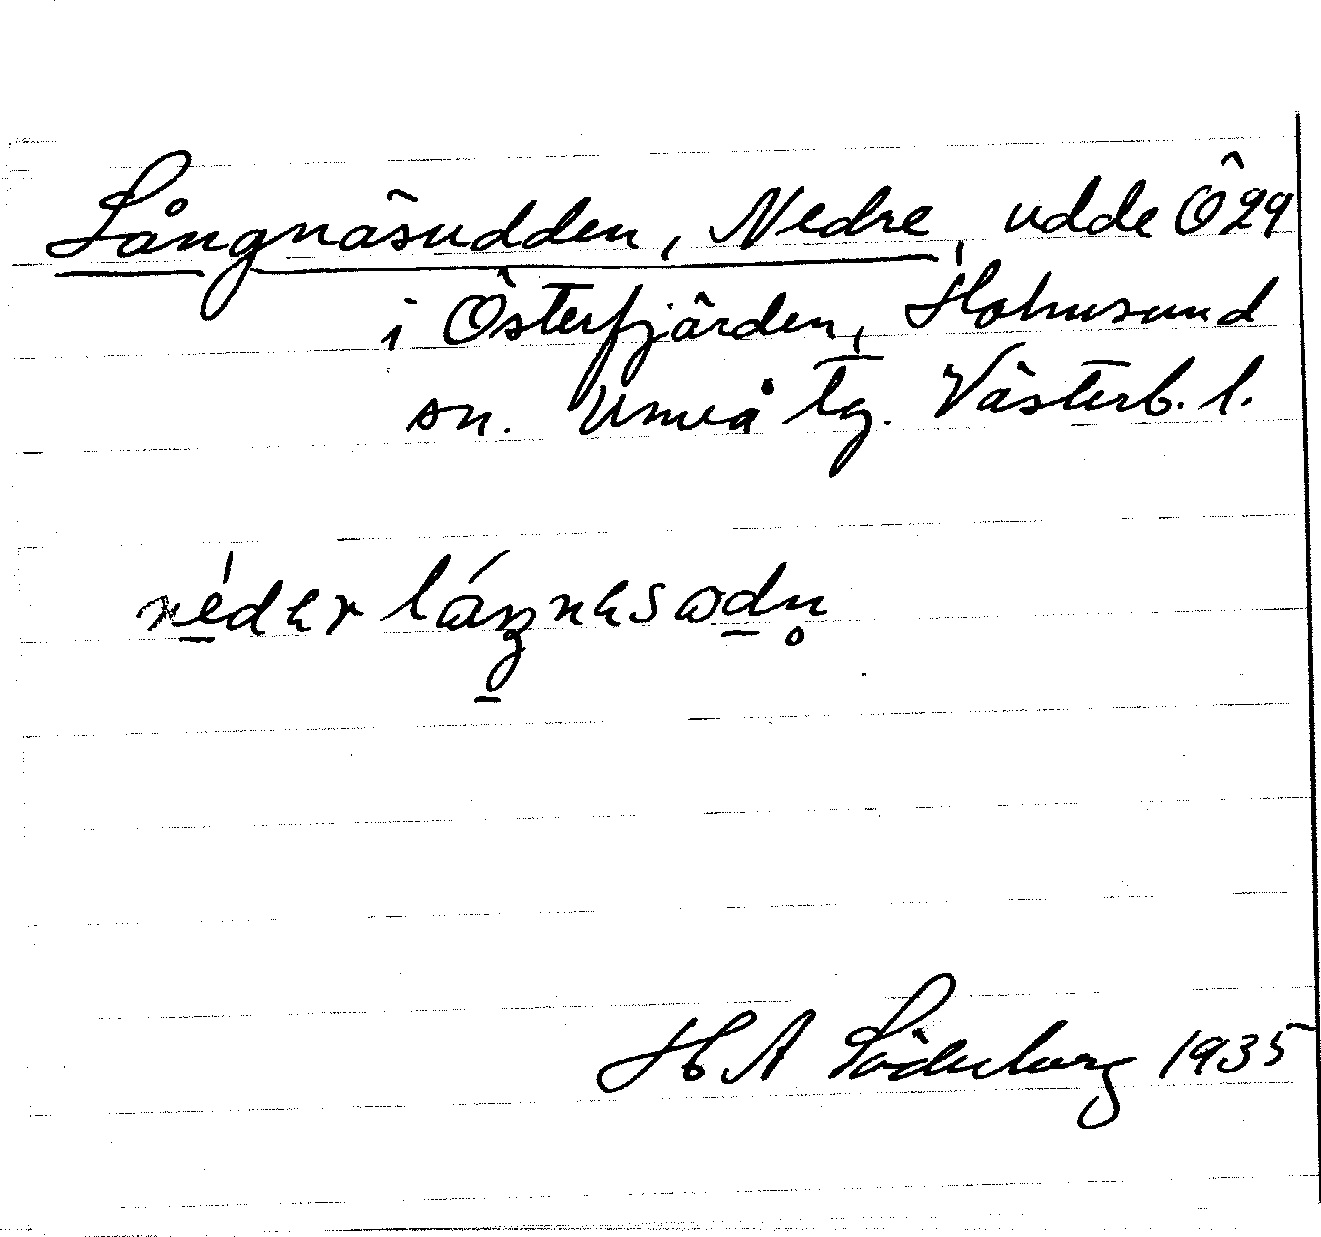 Långnäsudden, Nedre, udde Ö29
i Österfjärden, Holmsund
sn. Umeå tg. Västerb. l.
H A Söderberg 1935